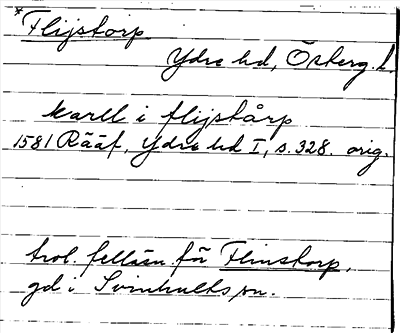 *Flijstorp
Ydre hd, Österg. l.
karll i flijstårp
1581 Rääf, Ydre hd I, s. 328. orig.
trol. felläsn. för Flinstorp,
gd i Svinhults sn.